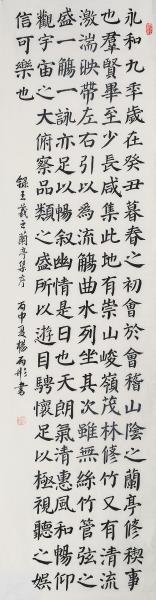 永和九年歲在癸丑暮春之初會於會稽山陰之蘭亭修稧事
也羣賢畢至少長咸集此地有崇山峻嶺茂林修竹又有清流
激湍映帶左右引以為流觴曲水列坐其次雖無絲竹管弦之
盛一觴一詠亦足以暢叙幽情是日也天朗氣清惠風和暢仰
觀宇宙之大俯察品類之盛所以遊目騁懷足以極視聽之娛
信可樂也
錄王羲之蘭亭集序 丙申夏楊雨彤書